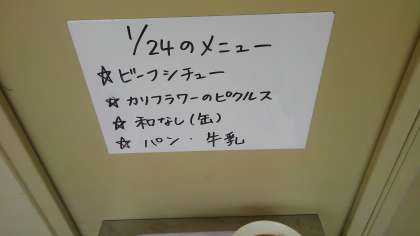 1/24のメニュー
☆ビーフシチュー
☆カリフラワーのピクルス
☆和なし(缶)
☆パン・牛乳